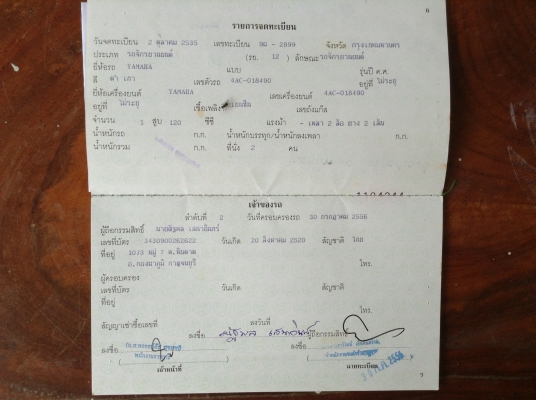 6
รายการจดทะเบียน
วันจดทะเบียน 2 ตุลาคม 2535 เลขทะเบียน 9ฉ - 2899 จังหวัด กรุงเทพมหานคร
ประเภท รถจักรยานยนต์ (รย. 12 ) ลักษณะ รถจักรยานยนต์
ยี่ห้อรถ YAMAHA แบบ รุ่นปี ค.ศ.
สี ดำ เทา เลขตัวรถ 4AC-018490 อยู่ที่ ไม่ระบุ
ยี่ห้อเครื่องยนต์ YAMAHA เลขเครื่องยนต์ 4AC-018490
อยู่ที่ ไม่ระบุ เชื้อเพลิง เลขถังแก๊ส
จำนวน 1 สูบ 120 ซีซี แรงม้า - เพลา 2 ล้อ ยาง 2 เส้น
น้ำหนักรถ ก.ก. น้ำหนักบรรทุก/น้ำหนักลงเพลา ก.ก.
น้ำหนักรวม ก.ก. ที่นั่ง 2 คน
เจ้าของรถ
ลำดับที่ 2 วันที่ครอบครองรถ 30 กรกฎาคม 2556
ผู้ถือกรรมสิทธิ์
เลขที่บัตร 3430900262622 วันเกิด 20 สิงหาคม 2520 สัญชาติ ไทย
ที่อยู่ 10/3 หมู่ 7
อ.ทองผาภูมิ กาญจนบุรี โทร.
ผู้ครอบครอง
เลขที่บัตร วันเกิด สัญชาติ
ที่อยู่ โทร.
สัญญาเช่าซื้อเลขที่ ลงวันที่
ลงชื่อ ผู้ถือกรรมสิทธิ์
ลงชื่อ ลงชื่อ
เจ้าหน้าที่ นายทะเบียน
7